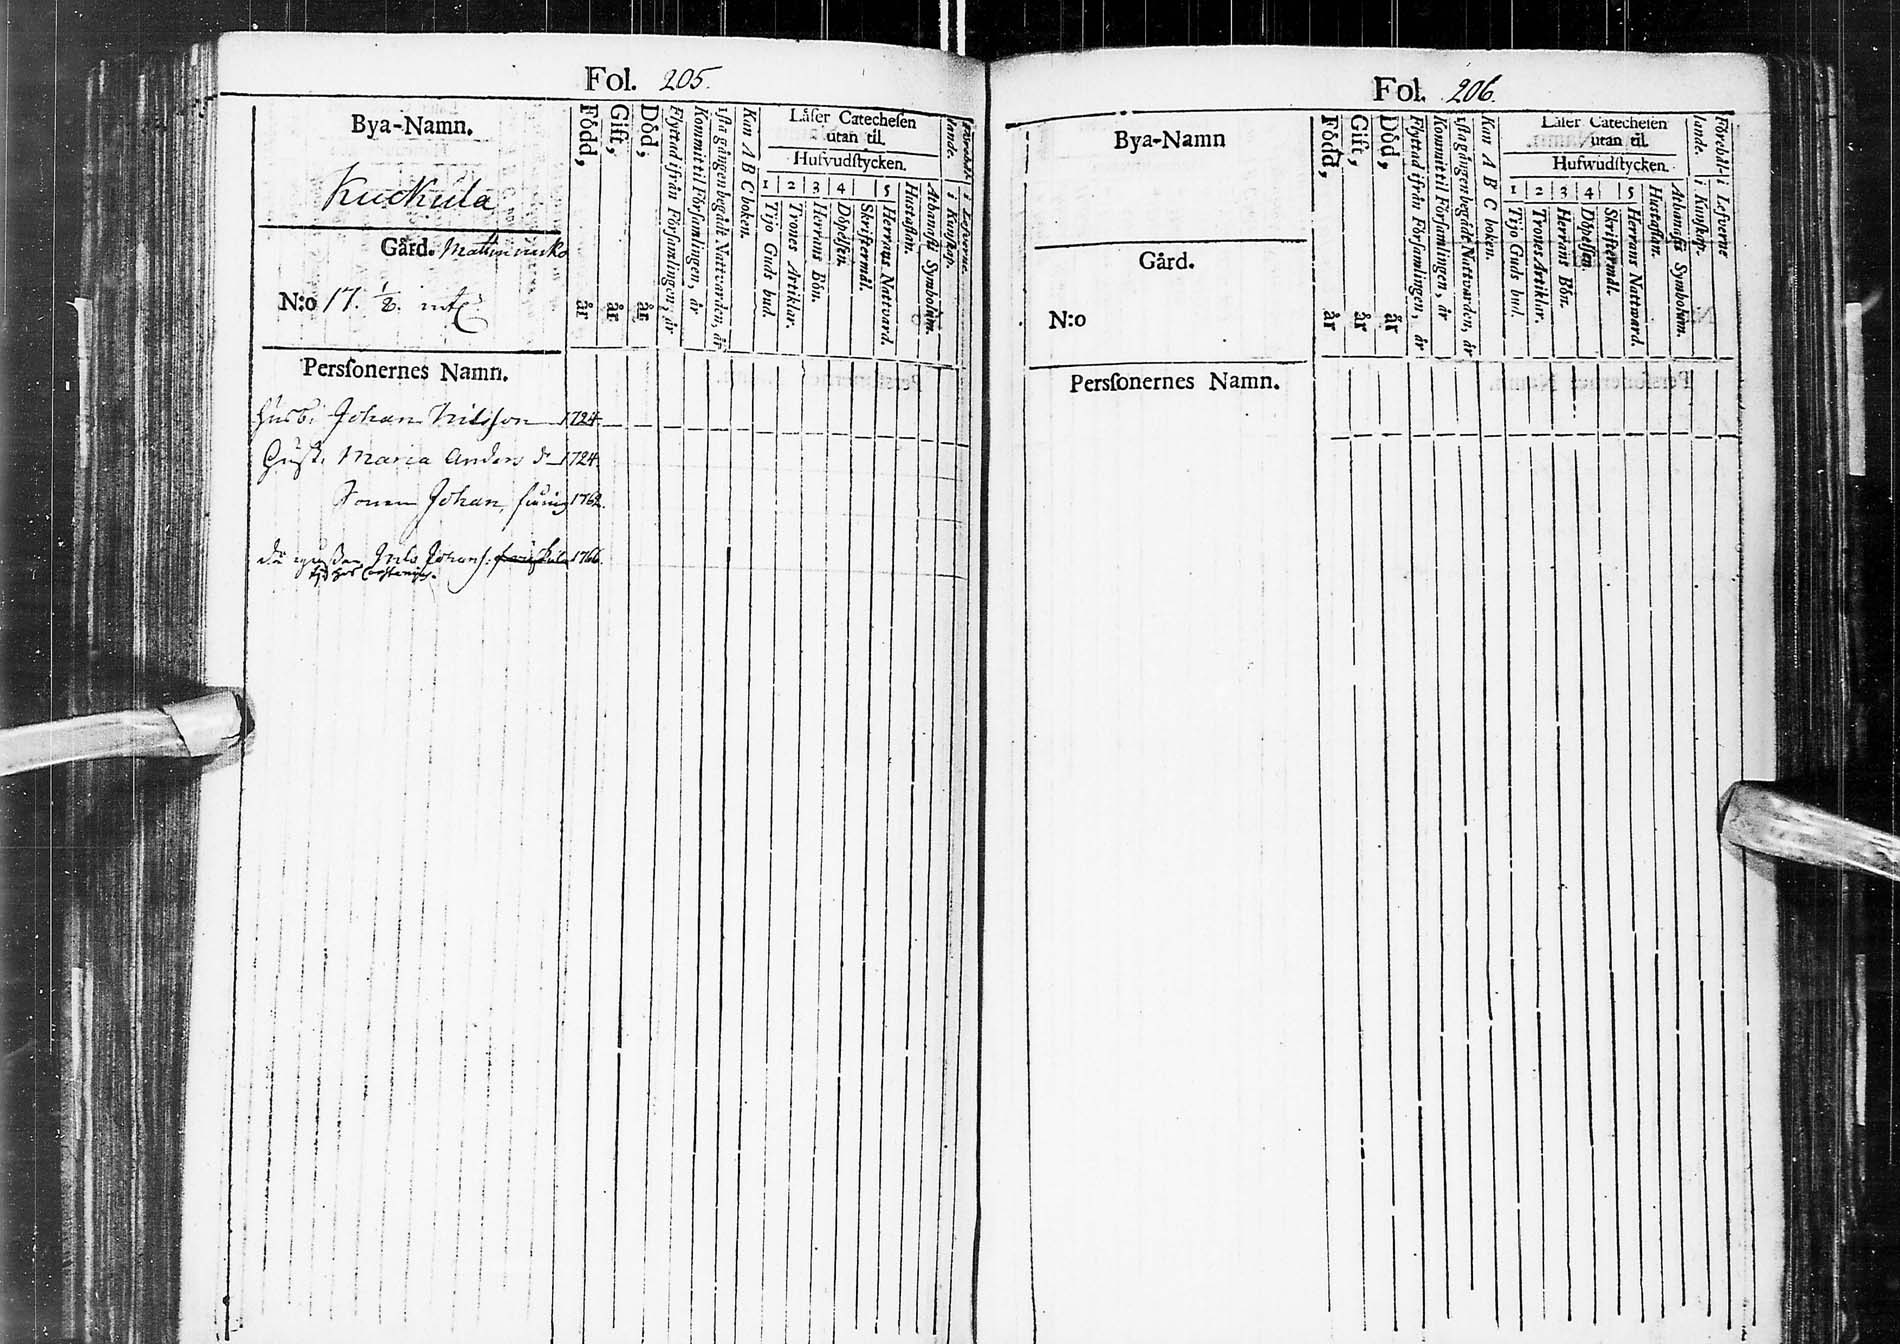 Fol. 205.
Bya-Namn.
Kuckula
Gård.
N:o 17. 1/8.
Född, år
Gift, år
Död, år
Flyttad ifrån Församlingen, år
Kommit til Församlingen, år
1sta gången begådt Nattvarden, år
Kan A B C boken.
Läser Catechesen
utan til.
Hufvudstycken.
1 2 3 4 5
Tijo Guds bud.
Trones Artiklar.
Herrans Bön.
Döpelsen.
Skriftermål.
Herrans Nattvard.
Hustaflan.
Athanasii Symbolum.
lande.
i Kunskap.
i Lefverne.
Perssonernes Namn.
Husb: Johan Nilsson 1724
Hust. Maria Anders dr 1724.
Sonen Johan, 1762.
Johans: 1766.
Fol. 206.
Bya-Namn
Gård.
N:o
Född, år
Gift, år
Död, år
Flyttad ifrån Församlingen, år
Kommit til Församlingen, år
1sta gången begådt Nattvarden, år
Kan A B C boken.
Läser Catechesen
utan til.
Hufwudstycken.
1 2 3 4 5
Tijo Guds bud.
Trones Artiklar.
Herrans Bön.
Döpelsen
Skriftermål.
Herrans Nattward
Hustaflan.
Athanasii Symbolum.
Förehål-
lande.
i Kunskap.
i Lefverne
Perssonernes Namn.